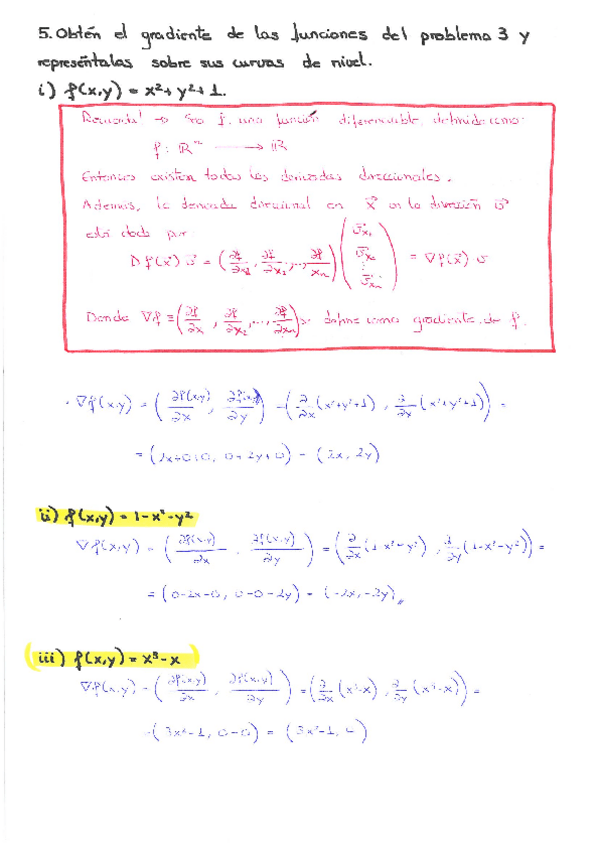 5. Obtén el gradiente de las funciones del problema 3 y
represéntalas sobre sus curvas de nivel.
i) f(x,y) = x²+y²+1.
Recuerda! → Sea f. una función diferenciable, definida como:
f: ℝⁿ ⟶ ℝ
Entonces existen todas las derivadas direccionales.
Además, la derivada direccional en x⃗ en la dirección v⃗
está dada por
Df(x⃗)v = (∂f/∂x₁, ∂f/∂x₂, ..., ∂f/xₙ) (v⃗x₁ v⃗x₂ ⋮ v⃗xₙ) = ∇f(x⃗)·v
Donde ∇f = (∂f/∂x, ∂f/∂x₂, ..., ∂f/∂xₙ) se define como gradiente de f.
· ∇f(x,y) = (∂f(x,y)/∂x, ∂f(x,y)/∂y) = (∂/∂x (x²+y²+1), ∂/∂y (x²+y²+1)) =
= (2x+0+0, 0+2y+0) = (2x, 2y)
ii) f(x,y) = 1-x²-y²
∇f(x,y) = (∂f(x,y)/∂x, ∂f(x,y)/∂y) = (∂/∂x (1-x²-y²), ∂/∂y (1-x²-y²)) =
= (0-2x-0, 0-0-2y) = (-2x, -2y)//
iii) f(x,y) = x³-x
∇f(x,y) = (∂f(x,y)/∂x, ∂f(x,y)/∂y) = (∂/∂x (x³-x), ∂/∂y (x³-x)) =
= (3x²-1, 0-0) = (3x²-1, 0)